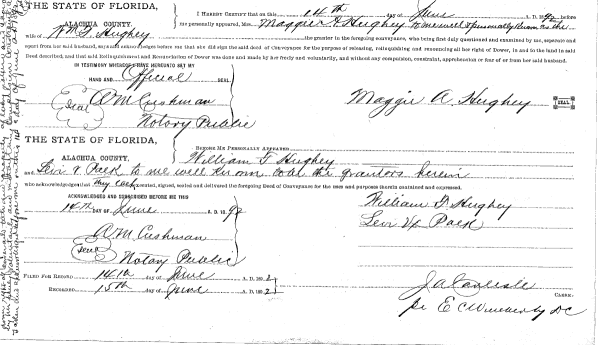 THE STATE OF FLORIDA,
ALACHUA COUNTY.
I HEREBY CERTIFY that on this 14th day of June A. D. 1892, before
me personally appeared, Mrs. Maggie A Hughey to me well & personally known as the
wife of Wm F. Hughey the grantor in the foregoing conveyance, who being first duly questioned and examined by me, separate and
apart from her said husband, says and acknowledges before me that she did sign the said deed of Conveyance for the purpose of releasing, relinquishing and renouncing all her right of Dower, in and to the land in said
Deed described, and that said Relinquishment and Renunciation of Dower was done and made by her freely and voluntarily, and without any compulsion, constraint, apprehension or fear of or from her said husband.
IN TESTIMONY WHEREOF I HAVE HEREUNTO SET MY
HAND AND Official SEAL
Seal A M Cushman
Notary Public
Maggie A. Hughey SEAL
THE STATE OF FLORIDA,
ALACHUA COUNTY.
BEFORE ME PERSONALLY APPEARED
William F Hughey
and Levi V Pack to me well known to be the grantors herein
who acknowledged that they each executed, signed, sealed and delivered the foregoing Deed of Conveyance for the uses and purposes therein contained and expressed.
ACKNOWLEDGED AND SUBSCRIBED BEFORE ME THIS
14th DAY OF June A. D. 1892
A M Cushman
Seal Notary Public
William F Hughey
Levi V Pack
FILED FOR RECORD 14th day of June A. D. 1892
RECORDED 15th day of June A. D. 1892
J A Carlisle
CLERK.
pr E C DC